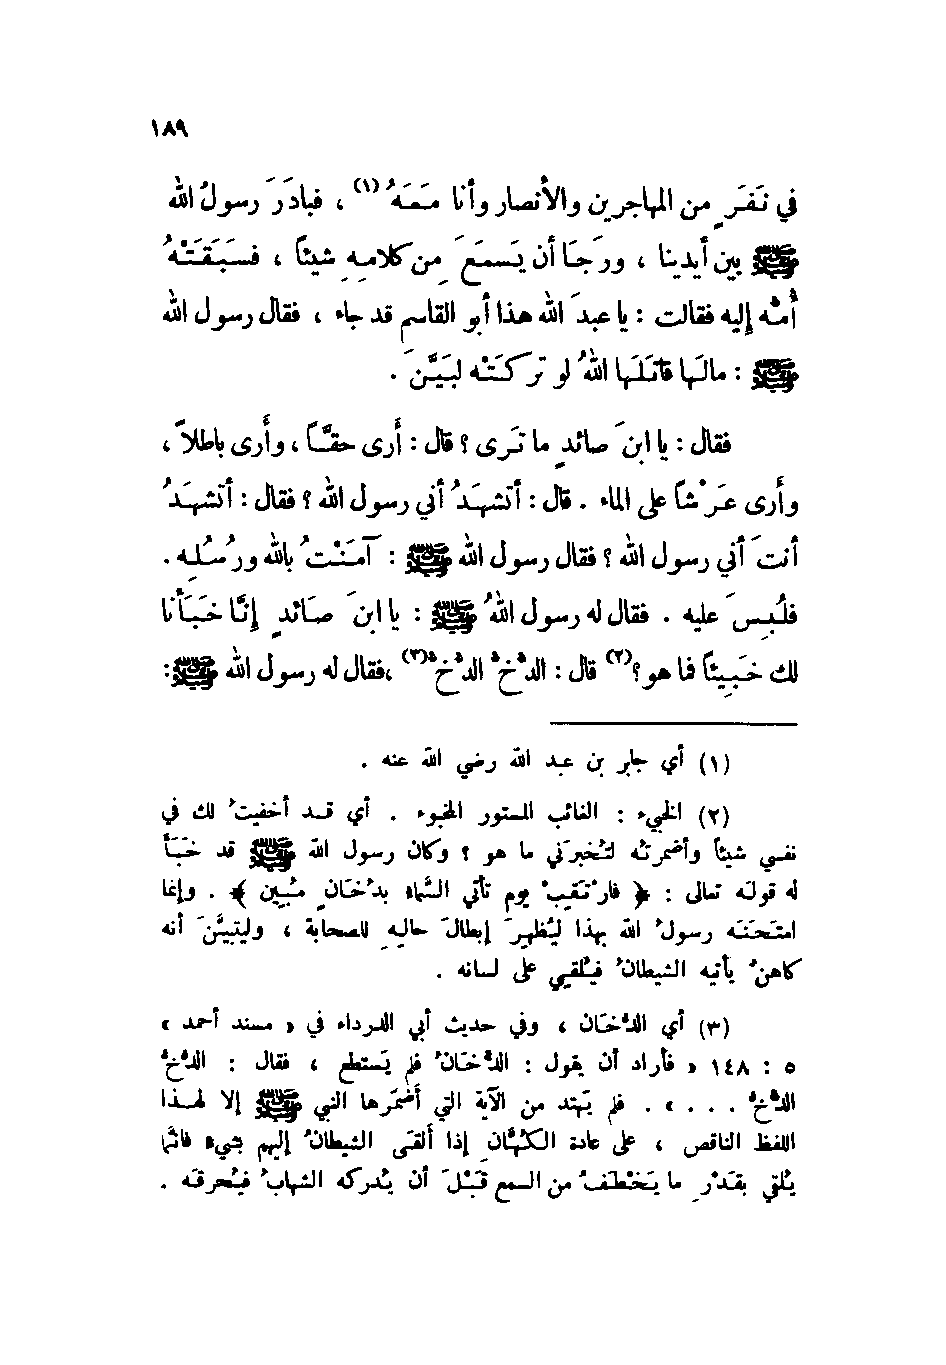 ١٨٩
في نَفَرٍ من المهاجرين والأنصار وأنا مَعَهُ (١) ، فبادَرَ رسولُ الله
ﷺ بين أيدينا ، ورَجَا أن يَسمَعَ مِن كلامِهِ شيئاً ، فسَبَقَتْهُ
أُمُّه إليه فقالت : يا عبدَ الله هذا أبو القاسم قد جاء ، فقال رسول الله
ﷺ : مالَها قاتَلَها اللهُ لو تركَتْه لبَيَّنَ .
فقال : يا ابنَ صائدٍ ما تَرى ؟ قال : أَرى حقّاً ، وأَرى باطلاً ،
وأَرى عَرْشاً على الماء . قال : أتشهَدُ أني رسول الله ؟ فقال : أتشهَدُ
أنتَ أني رسول الله ؟ فقال رسول الله ﷺ : آمَنْتُ بالله ورُسُلِه .
فلُبِسَ عليه . فقال له رسول اللهُ ﷺ : يا ابنَ صَائدٍ إنَّا خَبَأنا
لك خَبِيئاً فما هو ؟ (٢) قال : الدُّخُّ الدُّخُّ (٣) ، فقال له رسول الله ﷺ :
(١) أي جابر بن عبد الله رضي الله عنه .
(٢) الخبيء : الغائب المستور المخبوء . أي قد أخفيتُ لك في
نفسي شيئاً وأضمرتُه لتُخبِرَني ما هو ؟ وكان رسول الله ﷺ قد خَبَأَ
له قولَه تعالى : ﴿ فارْتَقِبْ يوم تأتي السَّماءُ بدُخَانٍ مُبِين ﴾ . وإنما
امتَحَنَه رسولُ الله بهذا ليُظهِرَ إبطالَ حالِهِ للصحابة ، وليتبيَّنَ أنه
كاهنٌ يأتيه الشيطانُ فيُلقِي على لسانه .
(٣) أي الدُّخَان ، وفي حديث أبي الدرداء في « مسند أحمد »
٥ : ١٤٨ « فأراد أن يقول : الدُّخَانُ فلم يَستطع ، فقال : الدُّخُّ
الدُّخُّ . . . » . فلم يَهتد من الآية التي أَضمَرها النبي ﷺ إلا لهذا
اللفظ الناقص ، على عادة الكُهَّانِ إذا ألقى الشيطانُ إليهم بشيء فانَّما
يُلقي بقَدْرِ ما يَختَطِفُ من السمع قَبْلَ أن يُدركه الشهابُ فيُحرقَه .